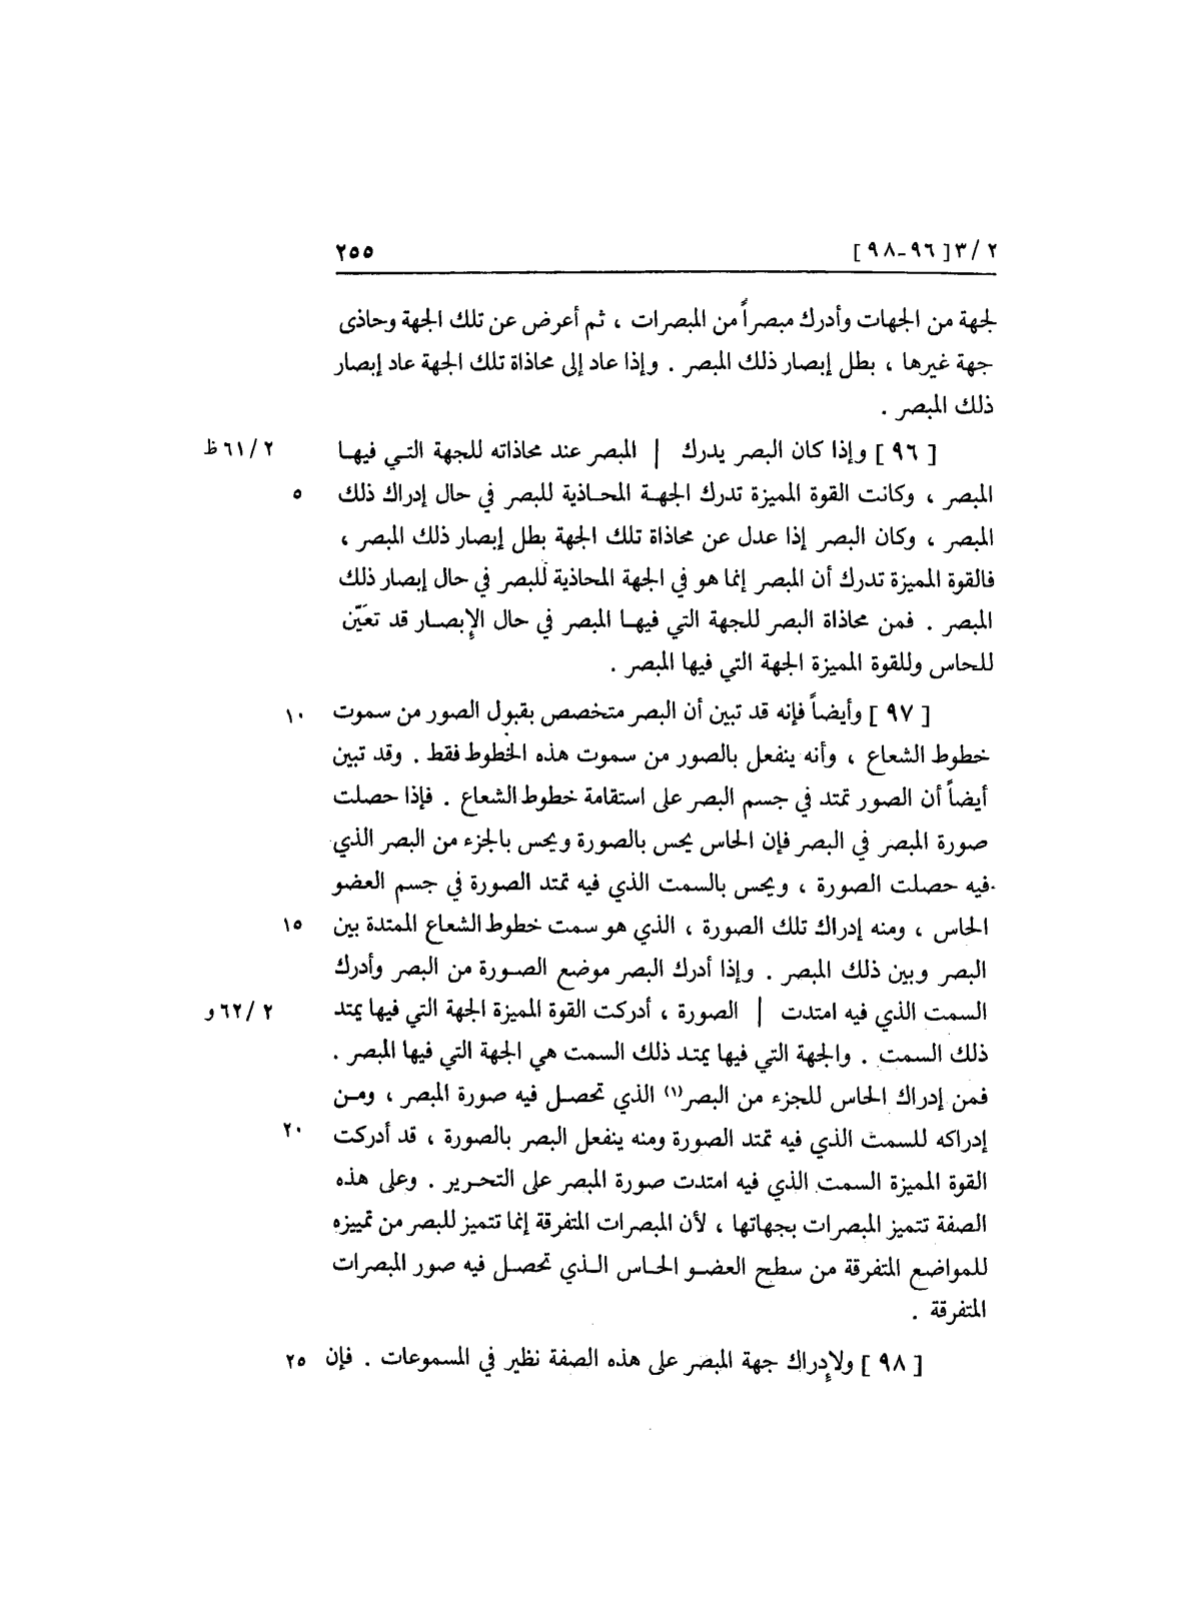 ٢ / ٣ [ ٩٦-٩٨ ] ٢٥٥
لجهة من الجهات وأدرك مبصراً من المبصرات ، ثم أعرض عن تلك الجهة وحاذى
جهة غيرها ، بطل إبصار ذلك المبصر . وإذا عاد إلى محاذاة تلك الجهة عاد إبصار
ذلك المبصر .
[ ٩٦ ] وإذا كان البصر يدرك | المبصر عند محاذاته للجهة التي فيها ٢ / ٦١ ظ
المبصر ، وكانت القوة المميزة تدرك الجهة المحاذية للبصر في حال إدراك ذلك ٥
المبصر ، وكان البصر إذا عدل عن محاذاة تلك الجهة بطل إبصار ذلك المبصر ،
فالقوة المميزة تدرك أن المبصر إنما هو في الجهة المحاذية للبصر في حال إبصار ذلك
المبصر . فمن محاذاة البصر للجهة التي فيها المبصر في حال الإبصار قد تعَيّن
للحاس وللقوة المميزة الجهة التي فيها المبصر .
[ ٩٧ ] وأيضاً فإنه قد تبين أن البصر متخصص بقبول الصور من سموت ١٠
خطوط الشعاع ، وأنه ينفعل بالصور من سموت هذه الخطوط فقط . وقد تبين
أيضاً أن الصور تمتد في جسم البصر على استقامة خطوط الشعاع . فإذا حصلت
صورة المبصر في البصر فإن الحاس يحس بالصورة ويحس بالجزء من البصر الذي
فيه حصلت الصورة ، ويحس بالسمت الذي فيه تمتد الصورة في جسم العضو
الحاس ، ومنه إدراك تلك الصورة ، الذي هو سمت خطوط الشعاع الممتدة بين ١٥
البصر وبين ذلك المبصر . وإذا أدرك البصر موضع الصورة من البصر وأدرك
السمت الذي فيه امتدت | الصورة ، أدركت القوة المميزة الجهة التي فيها يمتد ٢ / ٦٢ و
ذلك السمت . والجهة التي فيها يمتد ذلك السمت هي الجهة التي فيها المبصر .
فمن إدراك الحاس للجزء من البصر(١) الذي تحصل فيه صورة المبصر ، ومن
إدراكه للسمت الذي فيه تمتد الصورة ومنه ينفعل البصر بالصورة ، قد أدركت ٢٠
القوة المميزة السمت الذي فيه امتدت صورة المبصر على التحرير . وعلى هذه
الصفة تتميز المبصرات بجهاتها ، لأن المبصرات المتفرقة إنما تتميز للبصر من تمييزه
للمواضع المتفرقة من سطح العضو الحاس الذي تحصل فيه صور المبصرات
المتفرقة .
[ ٩٨ ] ولإدراك جهة المبصر على هذه الصفة نظير في المسموعات . فإن ٢٥